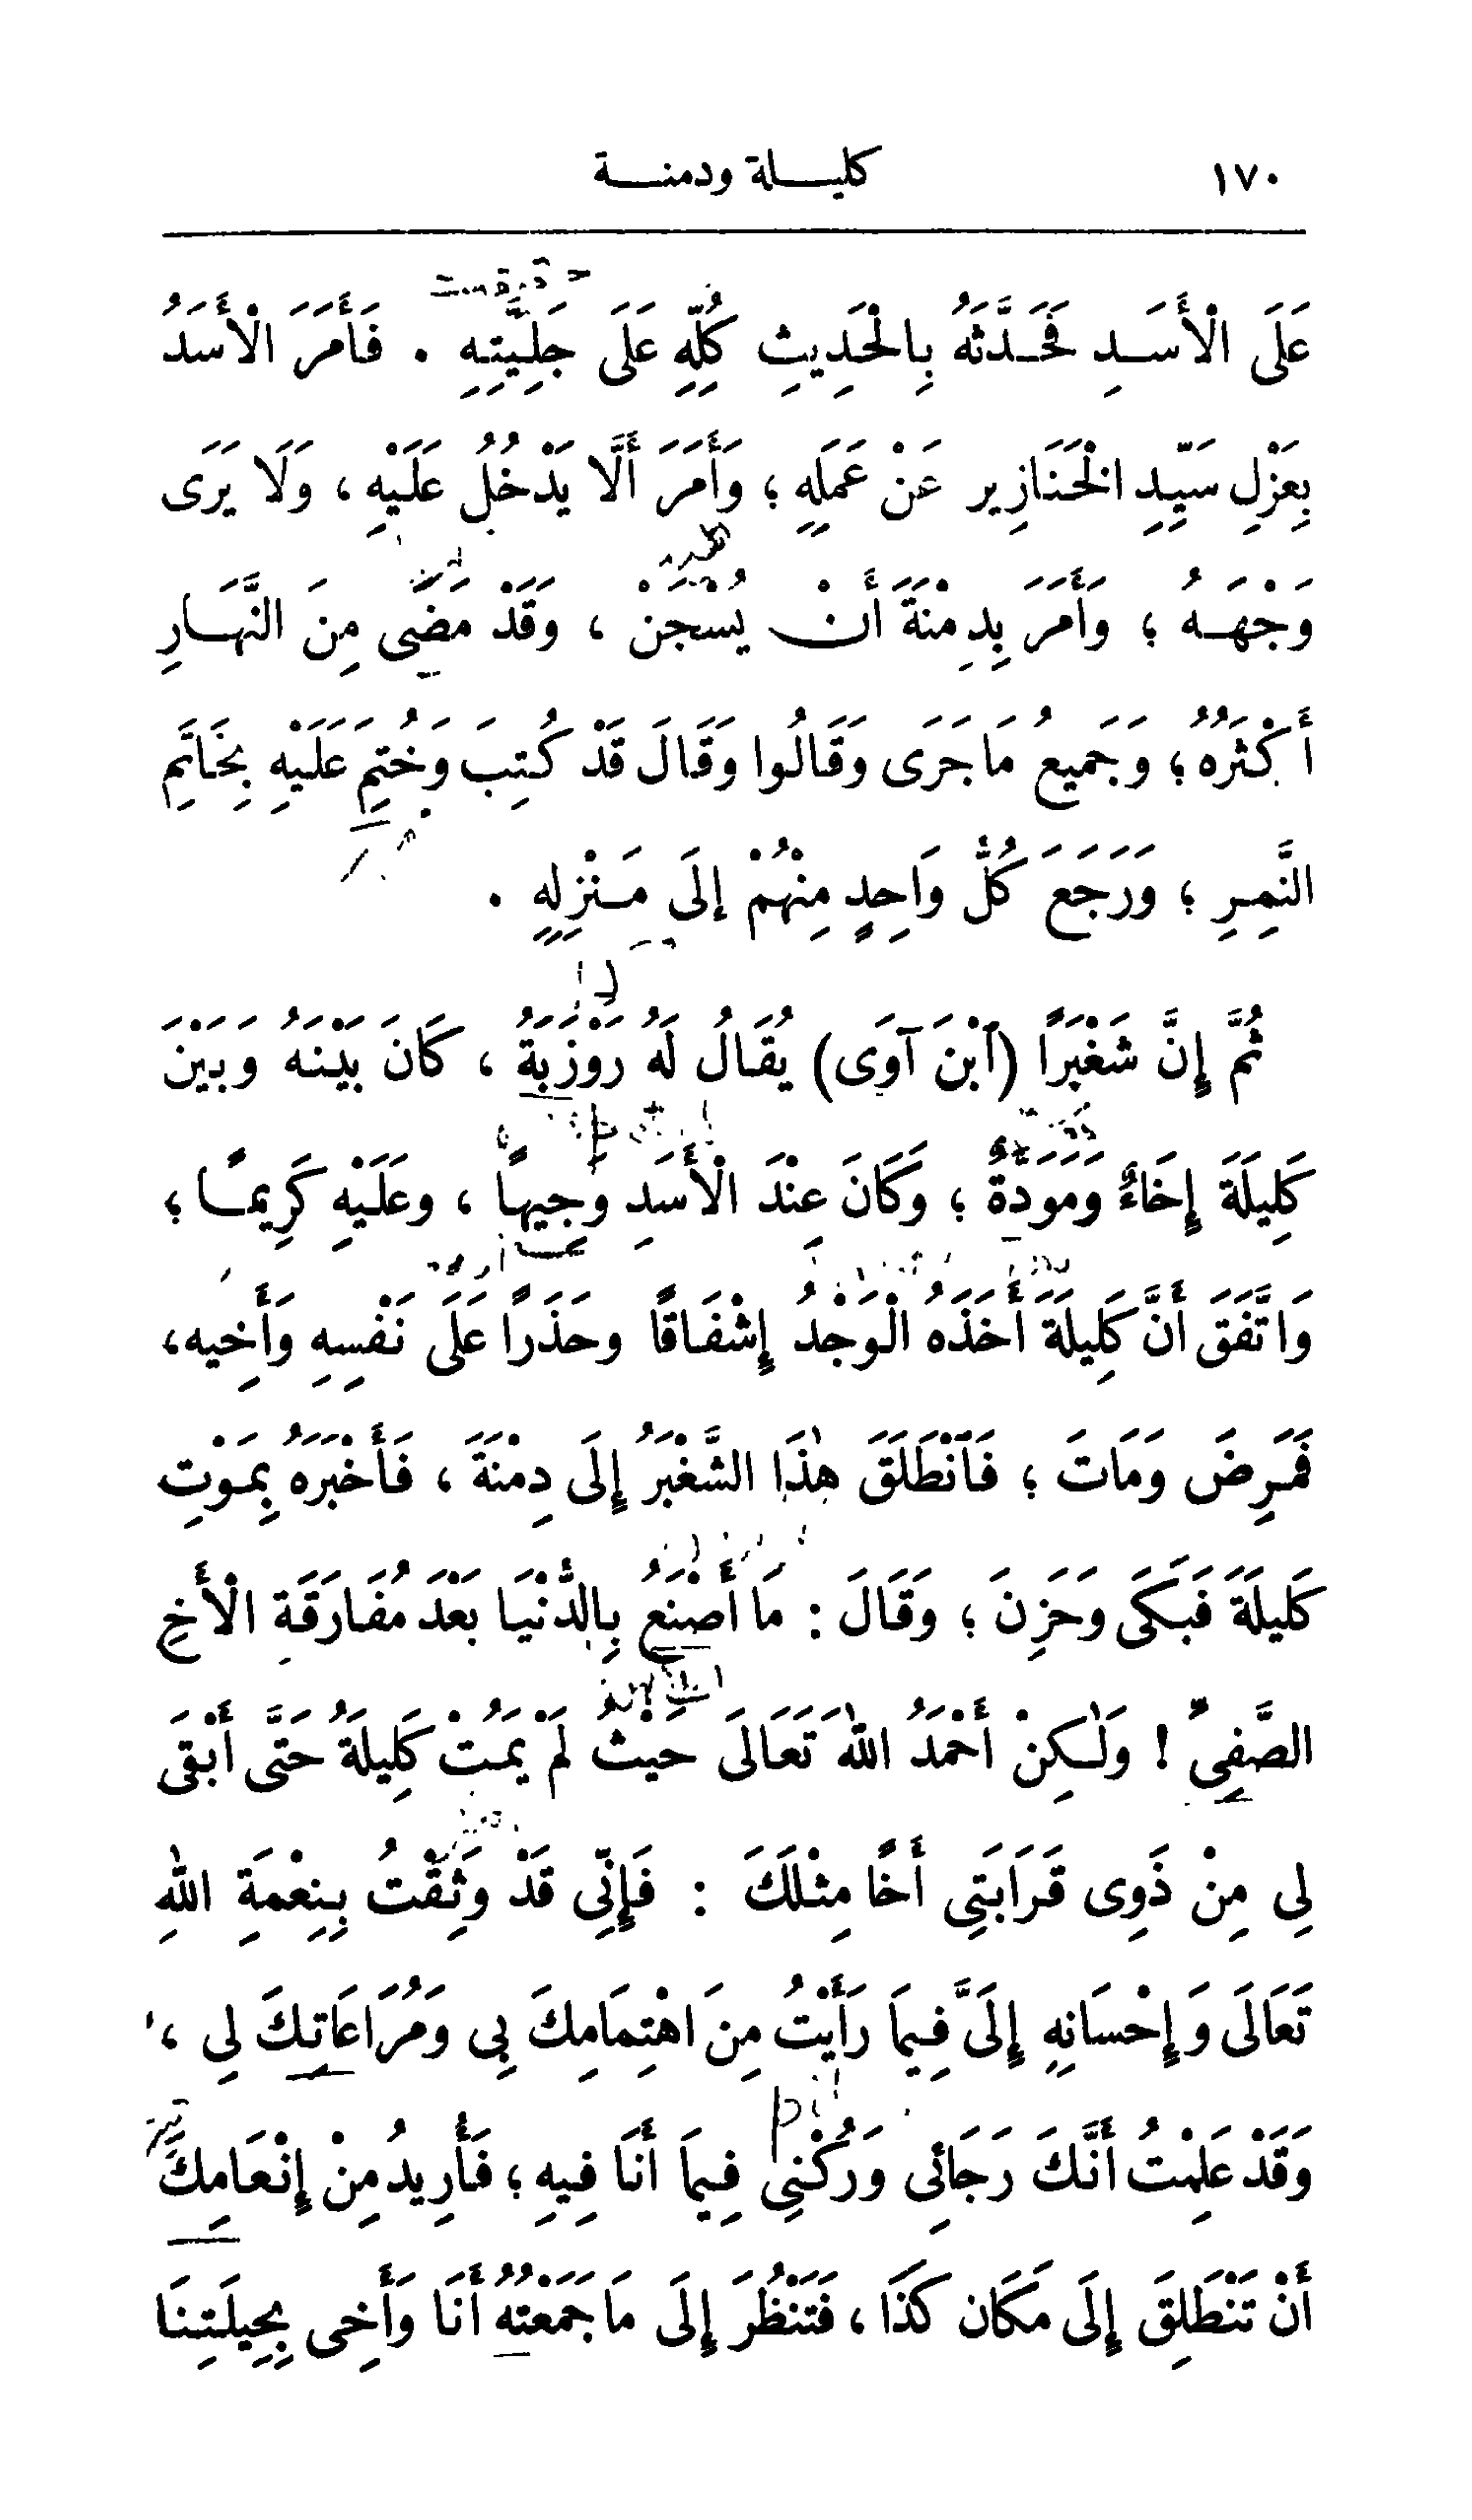 ١٧٠ كليلة ودمنة
عَلَى الْأَسَدِ فَحَدَّثَهُ بِالْحَدِيثِ كُلِّهِ عَلَى جَلِيَّتِهِ . فَأَمَرَ الْأَسَدُ
بِعَزْلِ سَيِّدِ الْخَنَازِيرِ عَنْ عَمَلِهِ ؛ وَأَمَرَ أَلَّا يَدْخُلَ عَلَيْهِ ، وَلَا يَرَى
وَجْهَهُ ؛ وَأَمَرَ بِدِمْنَةَ أَنْ يُسْجَنْ ، وَقَدْ مَضَى مِنَ النَّهَارِ
أَكْثَرُهُ ؛ وَجَمِيعُ مَا جَرَى وَقَالُوا وَقَالَ قَدْ كُتِبَ وَخُتِمَ عَلَيْهِ بِخَاتَمِ
النَّمِرِ ؛ وَرَجَعَ كُلُّ وَاحِدٍ مِنْهُمْ إِلَى مَنْزِلِهِ .
ثُمَّ إِنَّ شَغْبَرًا (ٱبْنَ آوَى) يُقَالُ لَهُ رَوْزَبَةُ ، كَانَ بَيْنَهُ وَبَيْنَ
كَلِيلَةَ إِخَاءٌ وَمَوَدَّةٌ ؛ وَكَانَ عِنْدَ الْأَسَدِ وَجِيهًا ، وعَلَيْهِ كَرِيمًا ؛
وَاتَّفَقَ أَنَّ كَلِيلَةَ أَخَذَهُ الْوَجْدُ إِشْفَاقًا وحَذَرًا عَلَى نَفْسِهِ وَأَخِيه،
فَمَرِضَ وَمَاتَ ؛ فَٱنْطَلَقَ هٰذَا الشَّغْبَرُ إِلَى دِمْنَةَ ، فَأَخْبَرَهُ بِمَوْتِ
كَلِيلَةَ فَبَكَى وَحَزِنَ ؛ وَقَالَ : مَا أَصْنَعُ بِالدُّنْيَا بَعْدَ مُفَارَقَةِ الْأَخِ
الصَّفِيِّ ! وَلٰكِنْ أَحْمَدُ اللهَ تَعَالَى حَيْثُ لَمْ يَمُتْ كَلِيلَةُ حَتَّى أَبْقَى
لِي مِنْ ذَوِى قَرَابَتِي أَخًا مِثْلَكَ : فَإِنِّى قَدْ وَثِقْتُ بِنِعْمَةِ اللهِ
تَعَالَى وَإِحْسَانِهِ إِلَىَّ فِيمَا رَأَيْتُ مِنَ اهْتِمَامِكَ بِي وَمُرَاعَاتِكَ لِي ،
وَقَدْ عَلِمْتُ أَنَّكَ رَجَائِى وَرُكْنِي فِيمَا أَنَا فِيهِ ؛ فَأُرِيدُ مِنْ إِنْعَامِكَ
أَنْ تَنْطَلِقَ إِلَى مَكَان كَذَا ، فَتَنْظُرَ إِلَى مَا جَمَعْتُهُ أَنَا وَأَخِى بِحِيلَتِنَا